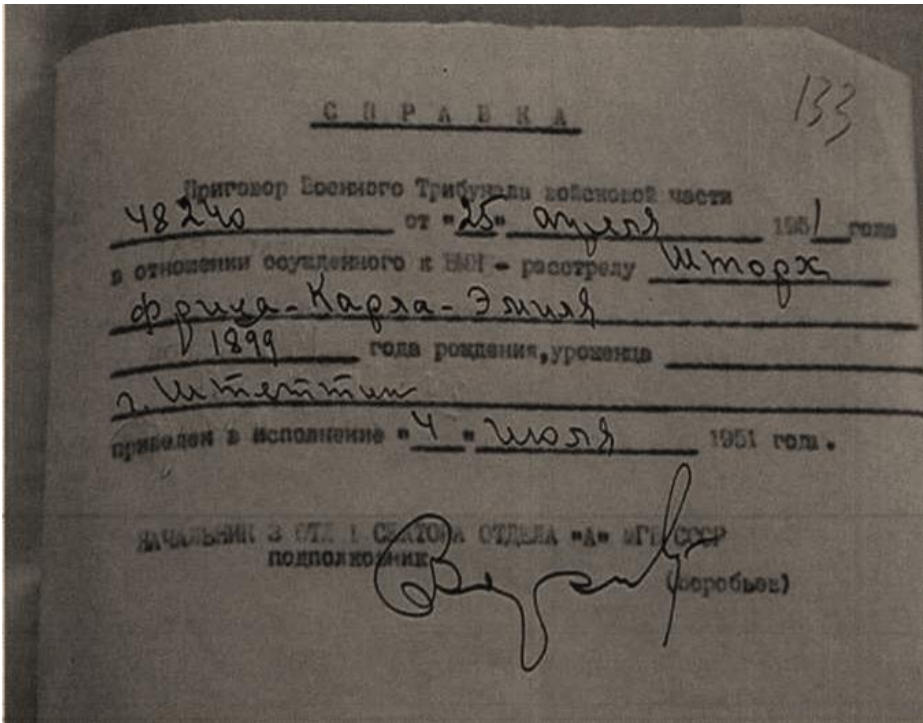 133
С П Р А В К А
Приговор Военного Трибунала войсковой части
48240 от "25" апреля 1951 года
в отношении осужденного к ВМН - расстрелу Шторх
Фрица-Карла-Эмиля
1899 года рождения, уроженца
г. Штеттин
приведен в исполнение "4" июля 1951 года.
НАЧАЛЬНИК 3 ОТД 1 СЕКТОРА ОТДЕЛА "А" МГБ СССР
подполковник
(Воробьев)